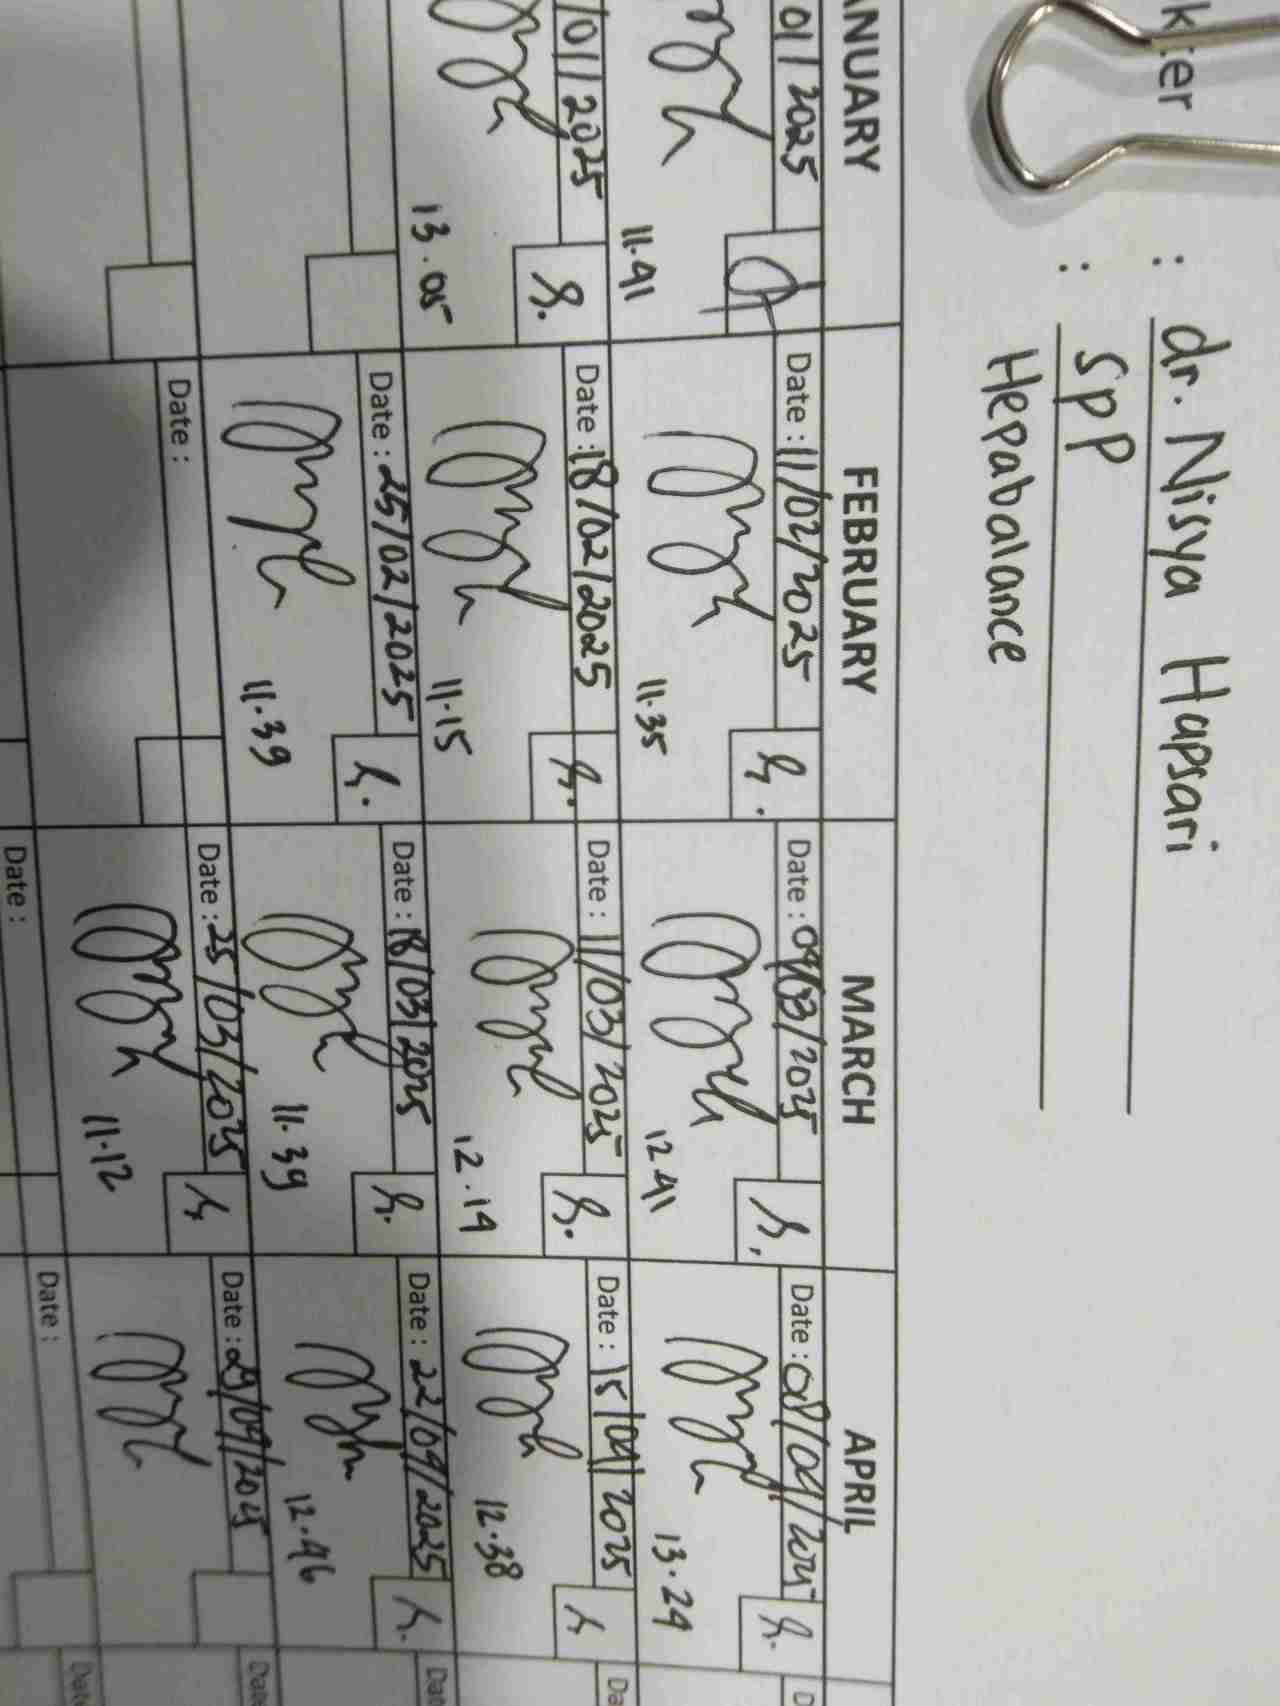 : dr. Nisya Hapsari
: SpP
Hepabalance
FEBRUARY MARCH APRIL
01/2025 Date : 11/02/2025 Date : 04/03/2025 Date : 08/04/2025
11.41 11.35 12.41 13.24
/01/2025 Date : 18/02/2025 Date : 11/03/2025 Date : 15/04/2025
13.05 11.15 12.14 12.38
Date : 25/02/2025 Date : 18/03/2025 Date : 22/04/2025
11.39 11.39 12.46
Date : Date : 25/03/2025 Date : 29/04/2025
11.12
Date : Date :